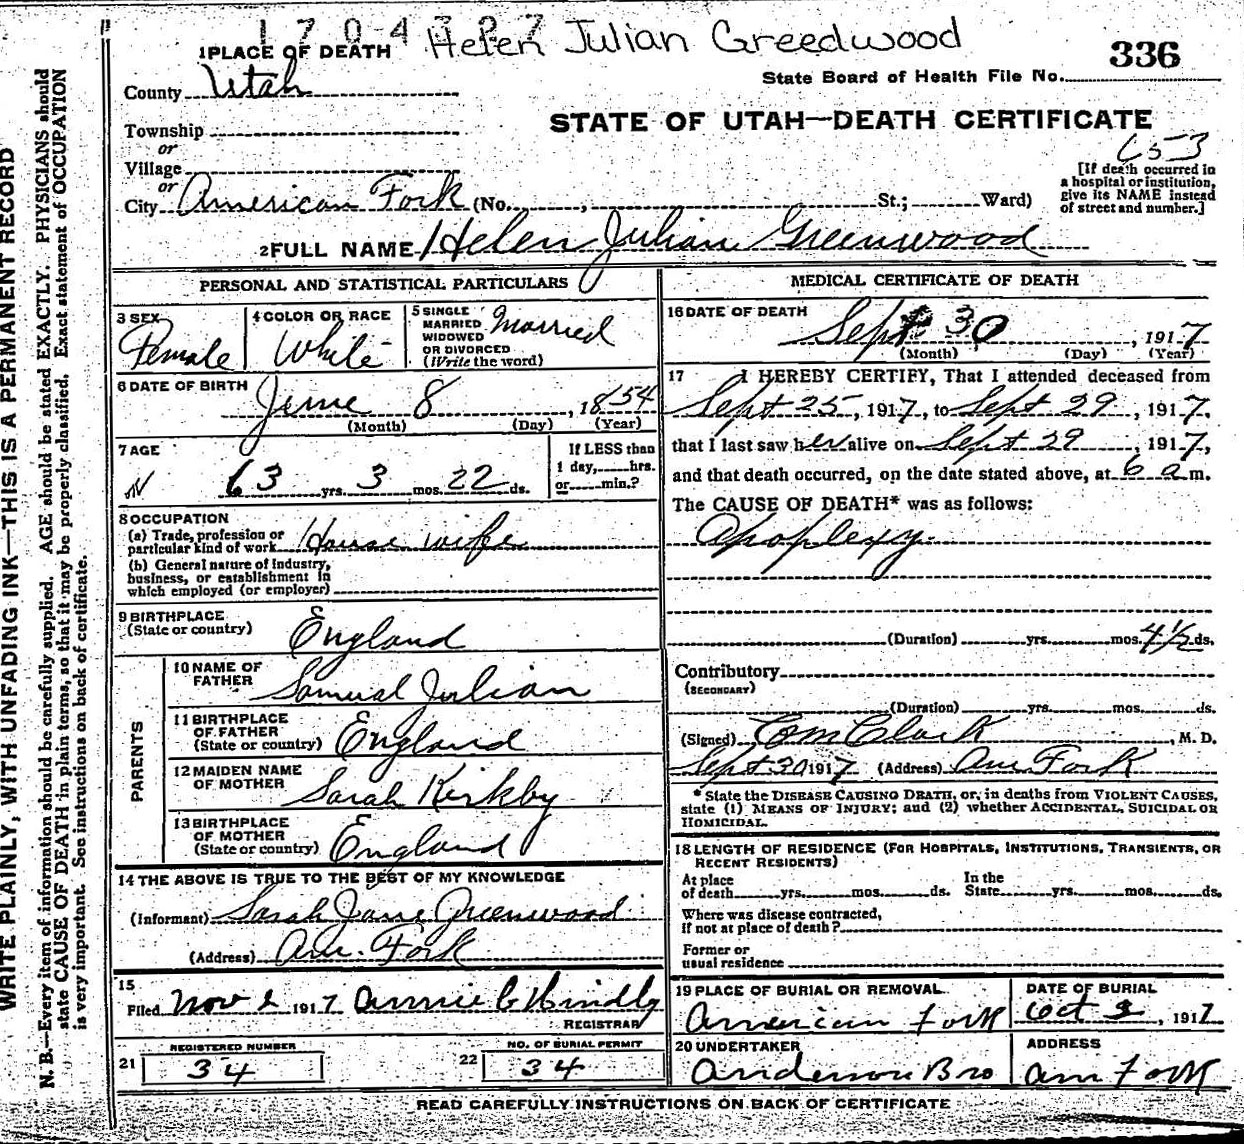 1704327
Helen Julian Greedwood
336
1 PLACE OF DEATH
State Board of Health File No.
County Utah
STATE OF UTAH—DEATH CERTIFICATE
Township
or
Village
or
City American Fork (No. , St.; Ward)
653
[If death occurred in
a hospital or institution,
give its NAME instead
of street and number.]
2 FULL NAME Helen Julian Greenwood
PERSONAL AND STATISTICAL PARTICULARS
3 SEX
Female
4 COLOR OR RACE
White
5 SINGLE
MARRIED
WIDOWED
OR DIVORCED
(Write the word)
Married
6 DATE OF BIRTH
June 8, 1854
(Month) (Day) (Year)
7 AGE
63 yrs. 3 mos. 22 ds.
If LESS than
1 day, hrs.
or min.?
8 OCCUPATION
(a) Trade, profession or
particular kind of work House wife
(b) General nature of industry,
business, or establishment in
which employed (or employer)
9 BIRTHPLACE
(State or country) England
PARENTS
10 NAME OF
FATHER Samual Julian
11 BIRTHPLACE
OF FATHER
(State or country) England
12 MAIDEN NAME
OF MOTHER Sarah Kirkby
13 BIRTHPLACE
OF MOTHER
(State or country) England
14 THE ABOVE IS TRUE TO THE BEST OF MY KNOWLEDGE
(Informant) Sarah Jane Greenwood
(Address) Am. Fork
15
Filed Nov 2 1917 Annie C Hindly
REGISTRAR
21 REGISTERED NUMBER
34
22 NO. OF BURIAL PERMIT
34
MEDICAL CERTIFICATE OF DEATH
16 DATE OF DEATH
Sept 30, 1917
(Month) (Day) (Year)
17 I HEREBY CERTIFY, That I attended deceased from
Sept 25, 1917, to Sept 29, 1917,
that I last saw her alive on Sept 29, 1917,
and that death occurred, on the date stated above, at 6 a m.
The CAUSE OF DEATH* was as follows:
Apoplexy.
(Duration) yrs. mos. 4½ ds.
Contributory
(SECONDARY)
(Duration) yrs. mos. ds.
(Signed) Clark, M. D.
Sept 30 1917 (Address) Am Fork
*State the DISEASE CAUSING DEATH, or, in deaths from VIOLENT CAUSES,
state (1) MEANS OF INJURY; and (2) whether ACCIDENTAL, SUICIDAL OR
HOMICIDAL.
18 LENGTH OF RESIDENCE (FOR HOSPITALS, INSTITUTIONS, TRANSIENTS, OR
RECENT RESIDENTS)
At place
of death yrs. mos. ds.
In the
State yrs. mos. ds.
Where was disease contracted,
if not at place of death?
Former or
usual residence
19 PLACE OF BURIAL OR REMOVAL
American Fork
DATE OF BURIAL
Oct 3, 1917
20 UNDERTAKER
Anderson Bro
ADDRESS
Am Fork
READ CAREFULLY INSTRUCTIONS ON BACK OF CERTIFICATE
WRITE PLAINLY, WITH UNFADING INK—THIS IS A PERMANENT RECORD
N. B.—Every item of information should be carefully supplied. AGE should be stated EXACTLY. PHYSICIANS should
state CAUSE OF DEATH in plain terms, so that it may be properly classified. Exact statement of OCCUPATION
is very important. See instructions on back of certificate.